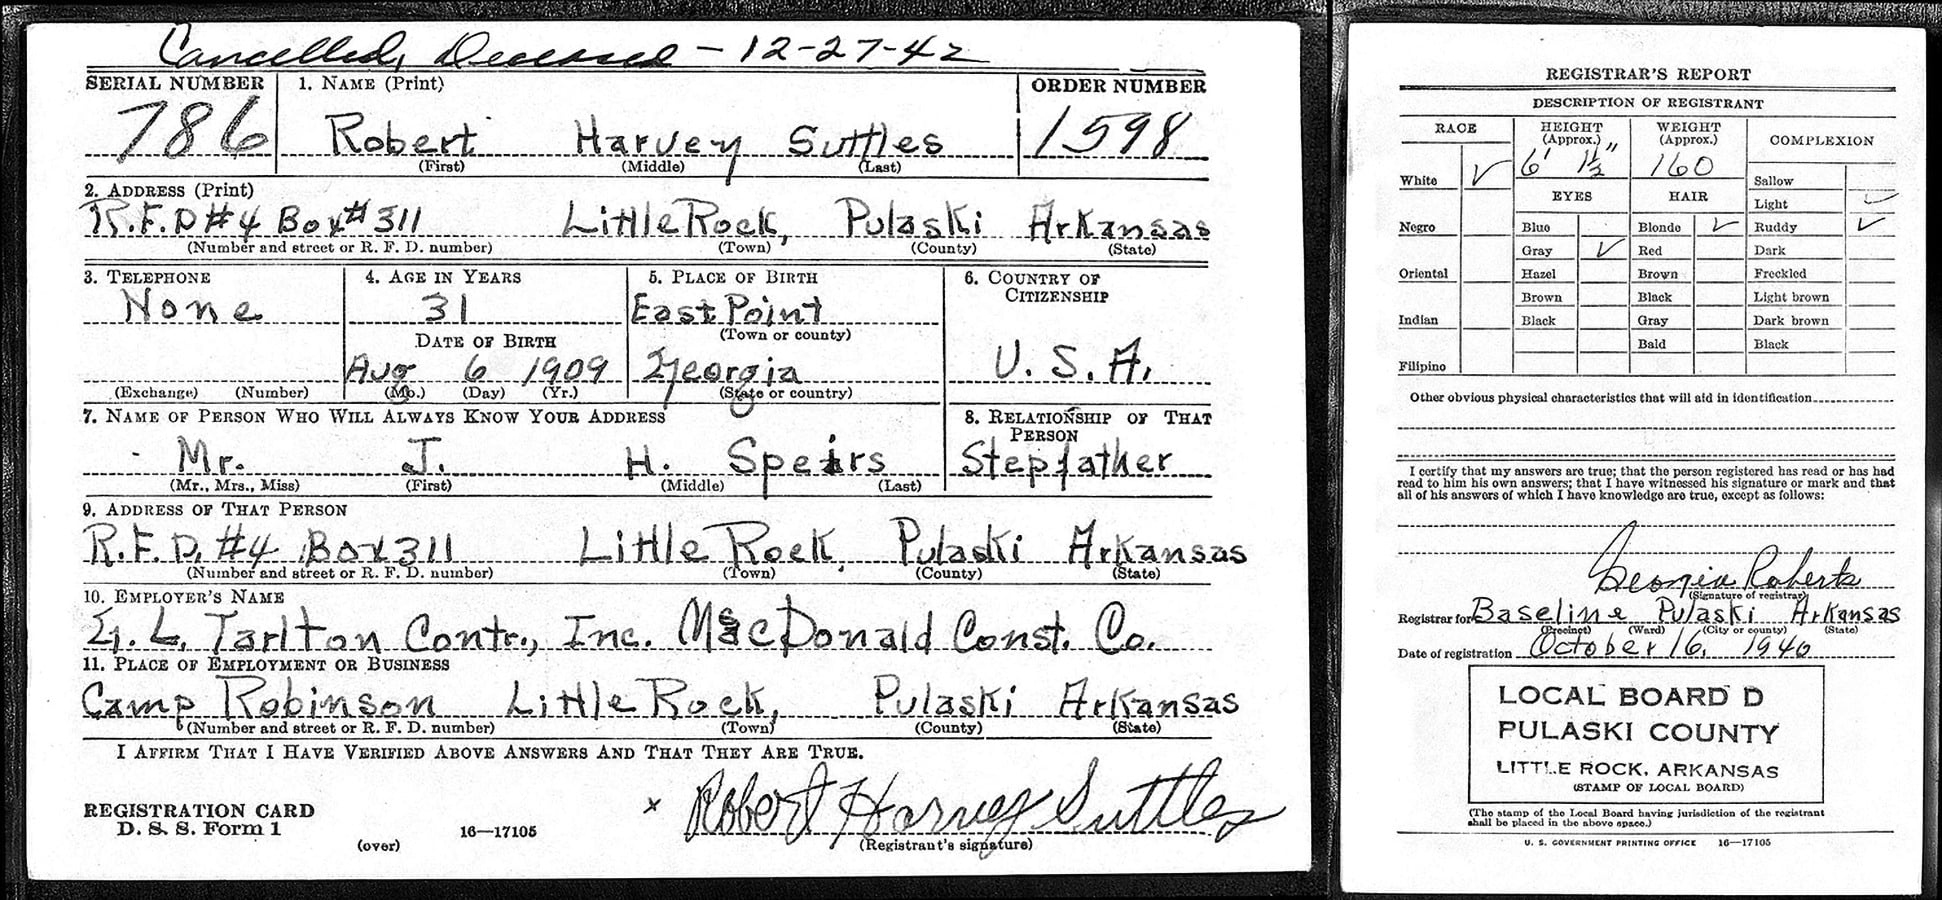 Cancelled, Deceased - 12-27-42
SERIAL NUMBER 1. NAME (Print) ORDER NUMBER
786 Robert Harvey Suttles 1598
(First) (Middle) (Last)
2. ADDRESS (Print)
R.F.D #4 Box #311 Little Rock, Pulaski Arkansas
(Number and street or R. F. D. number) (Town) (County) (State)
3. TELEPHONE 4. AGE IN YEARS 5. PLACE OF BIRTH 6. COUNTRY OF
CITIZENSHIP
None 31 East Point
(Town or county)
DATE OF BIRTH
Aug 6 1909 Georgia U. S. A.
(Exchange) (Number) (Mo.) (Day) (Yr.) (State or country)
7. NAME OF PERSON WHO WILL ALWAYS KNOW YOUR ADDRESS 8. RELATIONSHIP OF THAT
PERSON
Mr. J. H. Speirs Stepfather
(Mr., Mrs., Miss) (First) (Middle) (Last)
9. ADDRESS OF THAT PERSON
R.F.D. #4 Box 311 Little Rock, Pulaski Arkansas
(Number and street or R. F. D. number) (Town) (County) (State)
10. EMPLOYER'S NAME
L. Tarlton Contr., Inc. MacDonald Const. Co.
11. PLACE OF EMPLOYMENT OR BUSINESS
Camp Robinson Little Rock, Pulaski Arkansas
(Number and street or R. F. D. number) (Town) (County) (State)
I AFFIRM THAT I HAVE VERIFIED ABOVE ANSWERS AND THAT THEY ARE TRUE.
REGISTRATION CARD
D. S. S. Form 1 16—17105 x Robert Harvey Suttles
(over) (Registrant's signature)
REGISTRAR'S REPORT
DESCRIPTION OF REGISTRANT
RACE HEIGHT (Approx.) WEIGHT (Approx.) COMPLEXION
6' 1½" 160
White ✓ Sallow
EYES HAIR Light ✓
Negro Blue Blonde ✓ Ruddy ✓
Gray ✓ Red Dark
Oriental Hazel Brown Freckled
Brown Black Light brown
Indian Black Gray Dark brown
Bald Black
Filipino
Other obvious physical characteristics that will aid in identification
I certify that my answers are true; that the person registered has read or has had
read to him his own answers; that I have witnessed his signature or mark and that
all of his answers of which I have knowledge are true, except as follows:
Georgia Roberts
(Signature of registrar)
Registrar for Baseline Pulaski Arkansas
(Precinct) (Ward) (City or county) (State)
Date of registration October 16, 1940
LOCAL BOARD D
PULASKI COUNTY
LITTLE ROCK, ARKANSAS
(STAMP OF LOCAL BOARD)
(The stamp of the Local Board having jurisdiction of the registrant
shall be placed in the above space.)
U. S. GOVERNMENT PRINTING OFFICE 16—17105